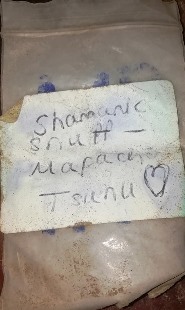 Shamanic
Snuff -
Mapacho
Tsunu ♡